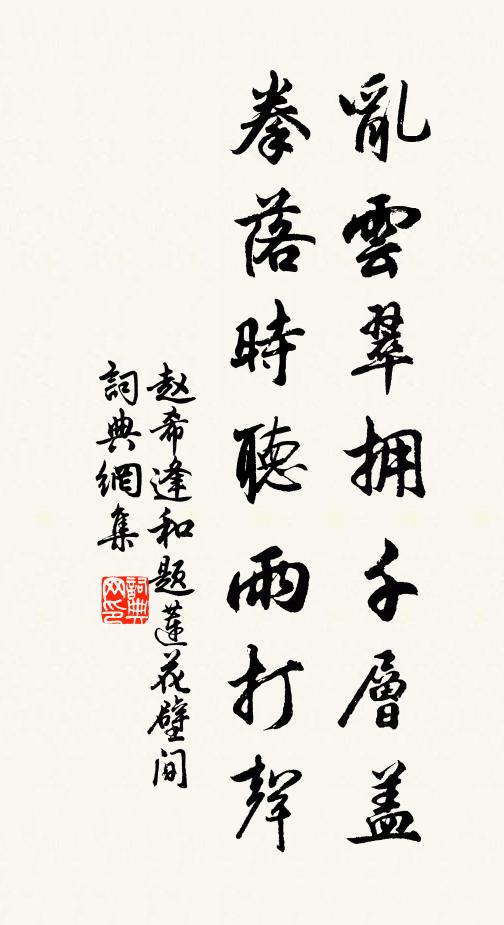 亂雲翠拥千層蓋
拳落時聽雨打聲
赵希逢和题蓮花壁间
詞典網集
詞典網印